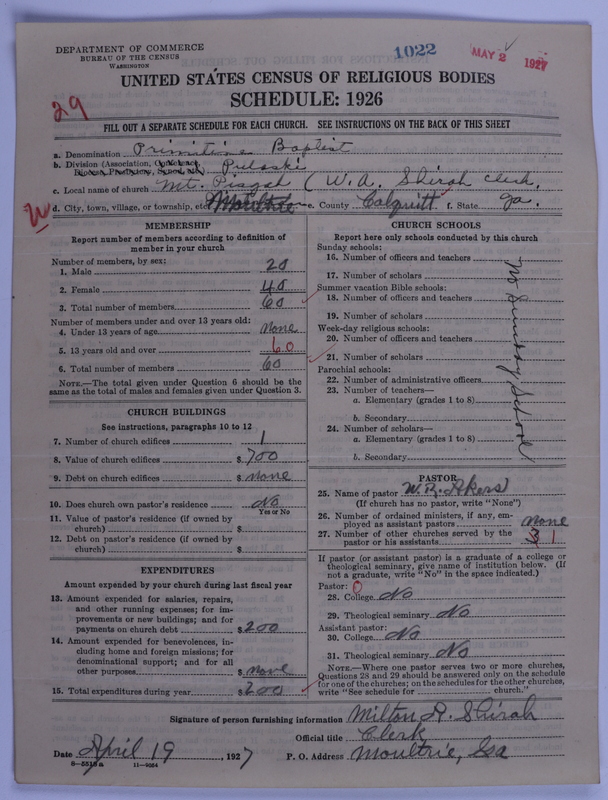 DEPARTMENT OF COMMERCE
BUREAU OF THE CENSUS
WASHINGTON
1022
MAY 2 1927
29
UNITED STATES CENSUS OF RELIGIOUS BODIES
SCHEDULE: 1926
FILL OUT A SEPARATE SCHEDULE FOR EACH CHURCH. SEE INSTRUCTIONS ON THE BACK OF THIS SHEET
a. Denomination Primitive Baptist
b. Division (Association, Conference,
Diocese, Presbytery, Synod, etc.) Pulaski
c. Local name of church Mt. Pisgah (W. A. Shirah Clerk,
d. City, town, village, or township, etc. Moultrie e. County Colquitt f. State Ga.
MEMBERSHIP
Report number of members according to definition of
member in your church
Number of members, by sex:
1. Male 20
2. Female 40
3. Total number of members 60
Number of members under and over 13 years old:
4. Under 13 years of age None
5. 13 years old and over 60
6. Total number of members 60
NOTE.—The total given under Question 6 should be the
same as the total of males and females given under Question 3.
CHURCH BUILDINGS
See instructions, paragraphs 10 to 12
7. Number of church edifices 1
8. Value of church edifices $ 700
9. Debt on church edifices $ None
10. Does church own pastor's residence No
Yes or No
11. Value of pastor's residence (if owned by
church) $
12. Debt on pastor's residence (if owned by
church) $
EXPENDITURES
Amount expended by your church during last fiscal year
13. Amount expended for salaries, repairs,
and other running expenses; for im-
provements or new buildings; and for
payments on church debt $ 200
14. Amount expended for benevolences, in-
cluding home and foreign missions; for
denominational support; and for all
other purposes $ None
15. Total expenditures during year $ 200
CHURCH SCHOOLS
Report here only schools conducted by this church
Sunday schools:
16. Number of officers and teachers
17. Number of scholars
Summer vacation Bible schools:
18. Number of officers and teachers
19. Number of scholars
Week-day religious schools:
20. Number of officers and teachers
21. Number of scholars
Parochial schools:
22. Number of administrative officers
23. Number of teachers—
a. Elementary (grades 1 to 8)
b. Secondary
24. Number of scholars—
a. Elementary (grades 1 to 8)
b. Secondary
No Sunday School
PASTOR
25. Name of pastor W. R. Akers
(If church has no pastor, write "None")
26. Number of ordained ministers, if any, em-
ployed as assistant pastors None
27. Number of other churches served by the
pastor or his assistants 3 1
If pastor (or assistant pastor) is a graduate of a college or
theological seminary, give name of institution below. (If
not a graduate, write "No" in the space indicated.)
Pastor: 0
28. College No
29. Theological seminary No
Assistant pastor:
30. College No
31. Theological seminary No
NOTE.—Where one pastor serves two or more churches,
Questions 28 and 29 should be answered only on the schedule
for one of the churches; on the schedules for the other churches,
write "See schedule for church."
Signature of person furnishing information Milton A. Shirah
Official title Clerk
Date April 19, 1927 P. O. Address Moultrie, Ga
8—5518a 11—9084